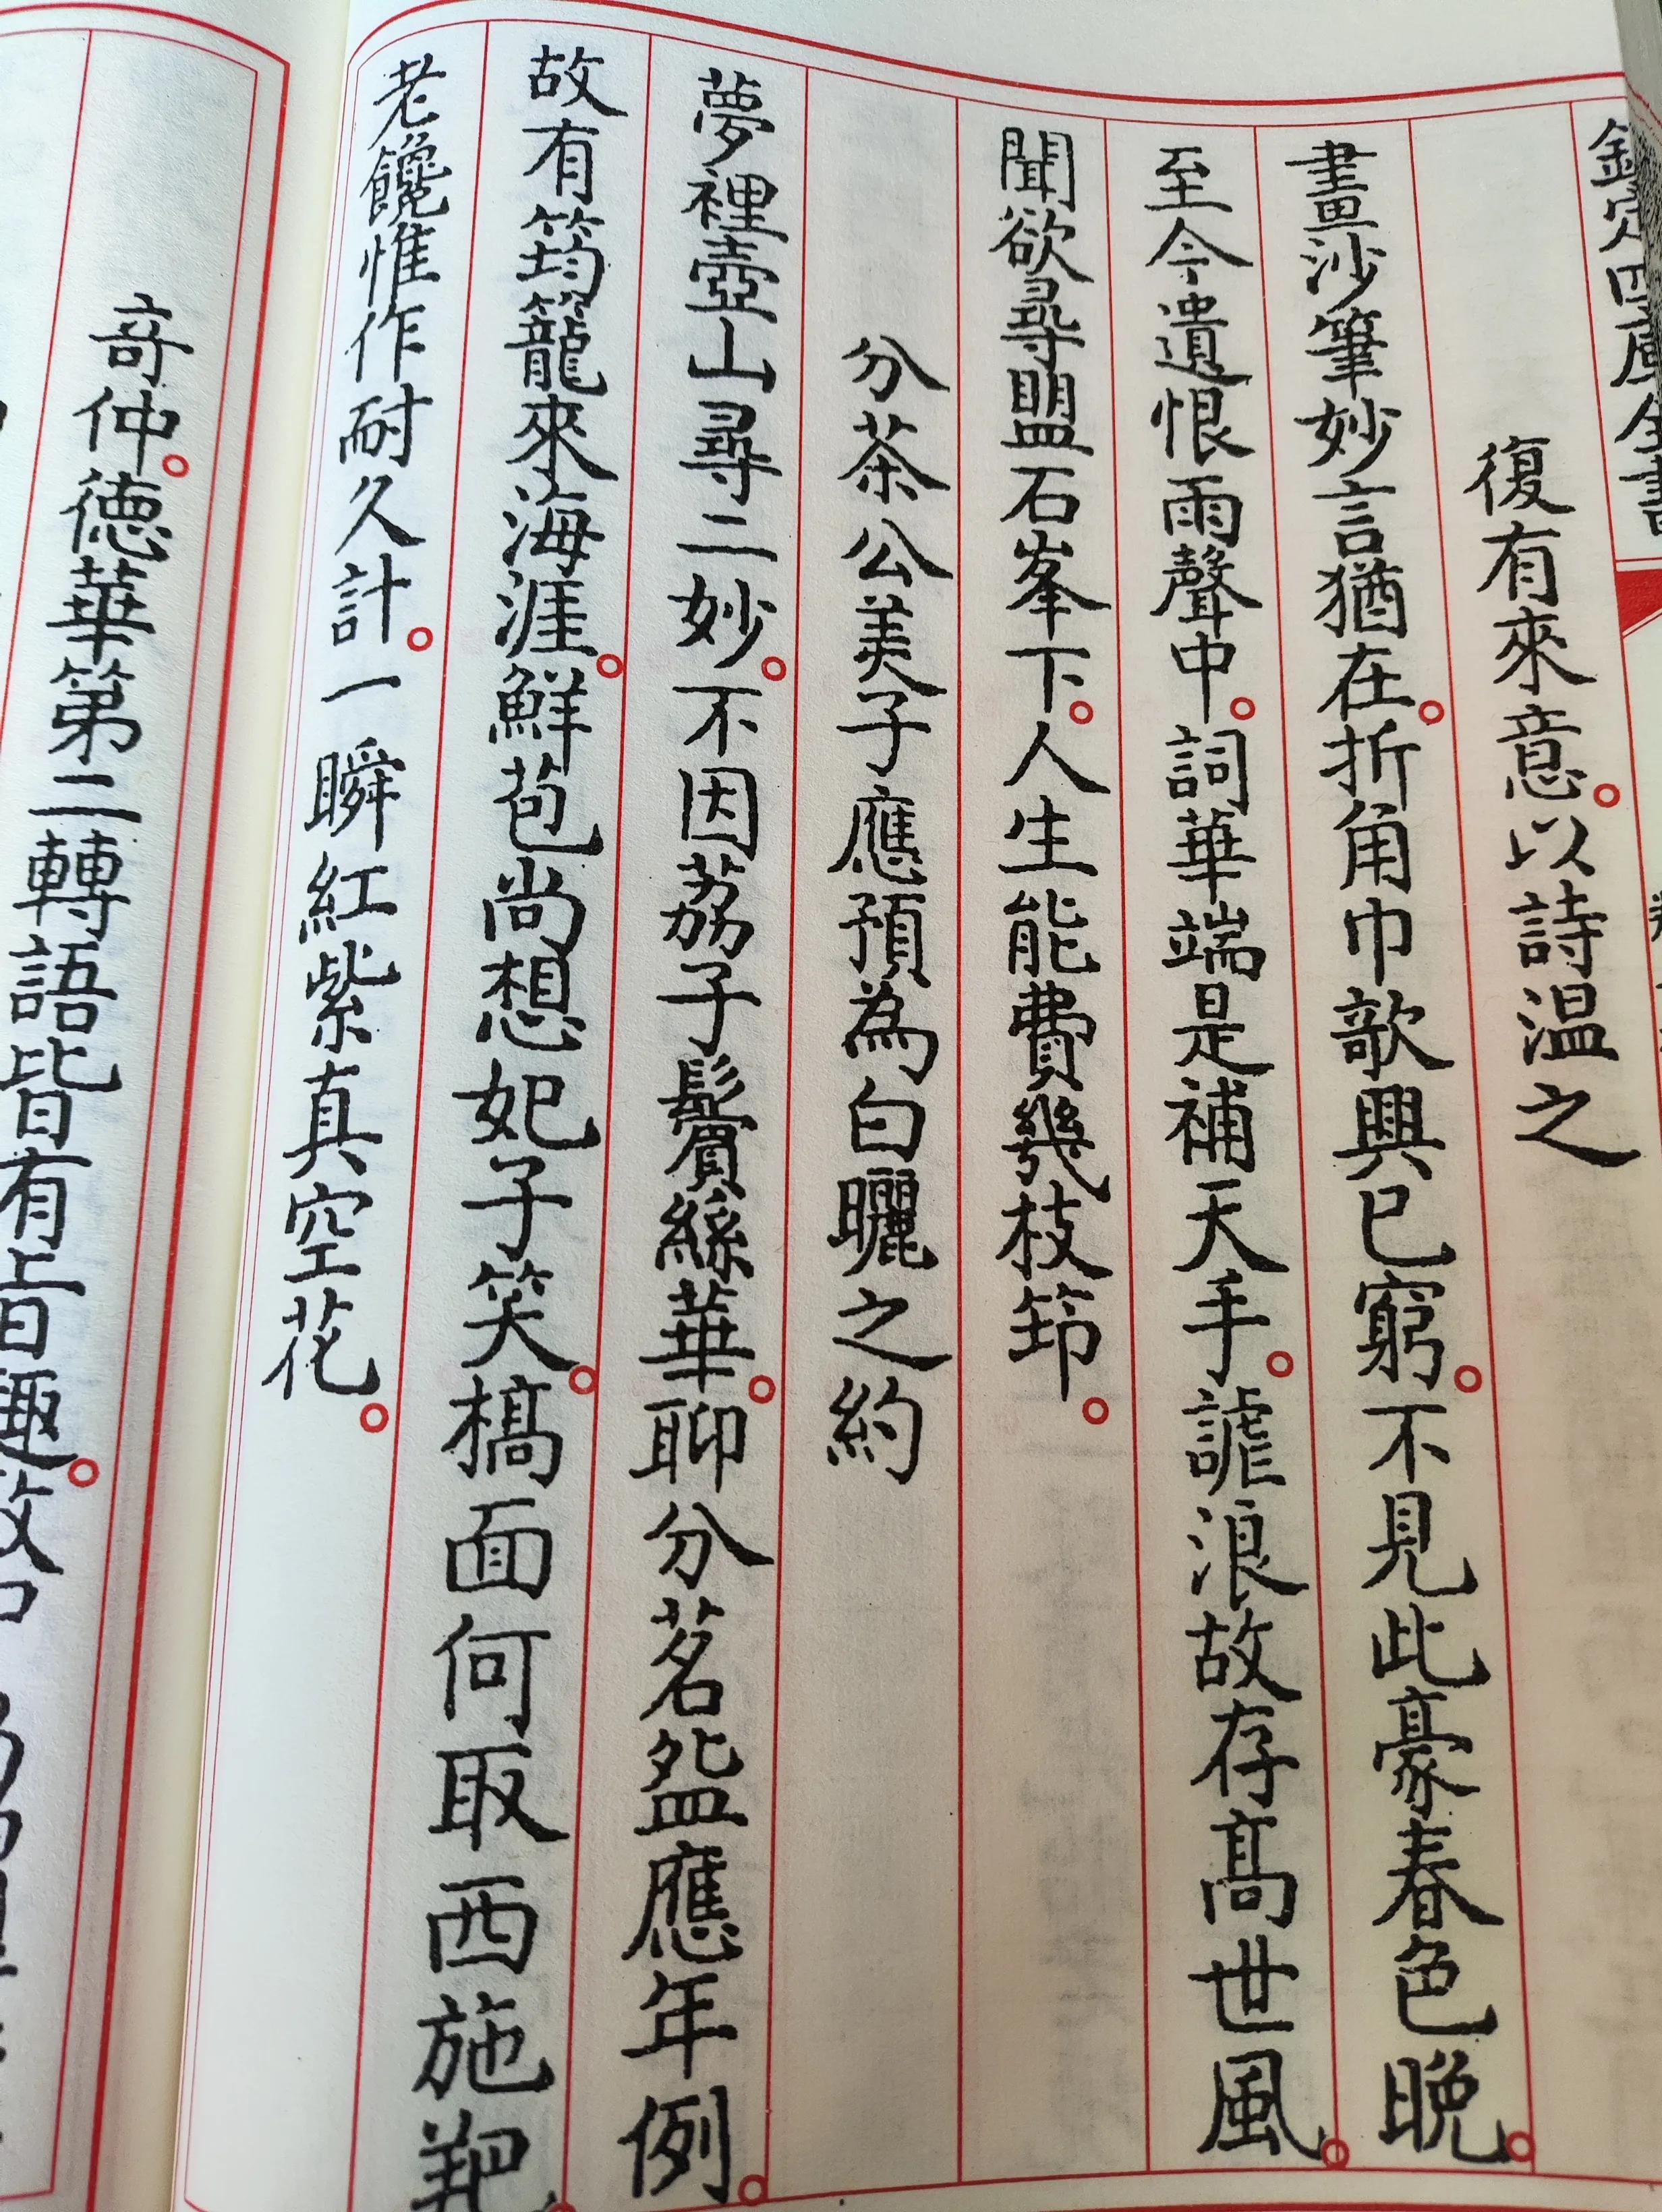 欽定四庫全書
復有來意。以詩温之
畫沙筆妙言猶在。折角巾欹興已窮。不見此豪春色晚。
至今遺恨雨聲中。詞華端是補天手。謔浪故存髙世風。
聞欲尋盟石峯下。人生能費幾枝笻。
分茶公美子應預為白曬之約
夢裡壺山尋二妙。不因荔子鬢絲華。聊分茗盌應年例。
故有筠籠來海涯。鮮苞尚想妃子笑。槁面何取西施靶。
老饞惟作耐久計。一瞬紅紫真空花。
奇仲。德華第二轉語皆有旨趣。故